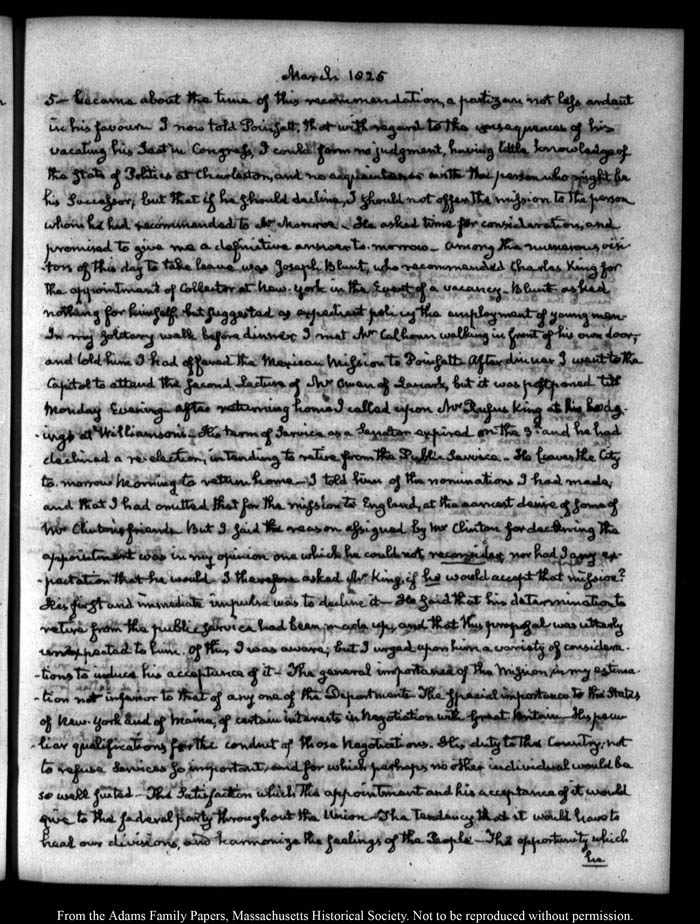 March 1825
5— became about the time of this recommendation, a partizan not less ardent
in his favour. I now told Poinsett, that with regard to the consequences of his
vacating his Seat in Congress, I could form no judgment, having little knowledge of
the State of Politics at Charleston, and no acquaintance with the person who might be
his Successor; but that if he should decline, I should not offer the mission to the person
whom he had recommended to Mr Monroe. He asked time for consideration, and
promised to give me a definitive answer to-morrow— Among the numerous visi
-tors of this day to take leave was Joseph Blunt, who recommended Charles King for
the appointment of Collector at New-York in the Event of a vacancy. Blunt asked
nothing for himself but suggested as expedient policy the employment of young men.
In my solitary walk before dinner, I met Mr Calhoun walking in front of his own door;
and told him I had offered the Mexican Mission to Poinsett. After dinner I went to the
Capitol to attend the second Lecture of Mr Owen of Lanark, but it was postponed till
Monday Evening— After returning home I called upon Mr Rufus King at his lodg-
-ings at Williamson's— His term of Service as a Senator expired on the 3d. and he had
declined a re-election, intending to retire from the Public Service— He leaves the City
to-morrow Morning to return home— I told him of the nominations I had made,
and that I had omitted that for the mission to England, at the earnest desire of some of
Mr Clinton's friends. But I said the reason assigned by Mr Clinton for declining the
appointment was in my opinion one which he could not reconsider, nor had I any ex-
-pectation that he would. I therefore asked Mr King, if he would accept that mission?
His first and immediate impulse was to decline it— He said that his determination to
retire from the public service had been made up, and that this proposal was utterly
unexpected to him. Of this I was aware; but I urged upon him a variety of considera-
-tions to induce his acceptance of it— The general importance of the Mission, in my estima-
-tion not inferior to that of any one of the Departments. The special importance to the States
of New-York and of Maine, of certain interests in Negotiation with Great Britain— His pecu-
-liar qualifications for the conduct of those Negotiations. His duty to the Country, not
to refuse services so important, and for which perhaps no other individual would be
so well suited— The Satisfaction which this appointment and his acceptance of it would
give to the federal party throughout the Union— The tendency that it would have to
heal our divisions, and harmonize the feelings of the People— The opportunity which
he
From the Adams Family Papers, Massachusetts Historical Society. Not to be reproduced without permission.